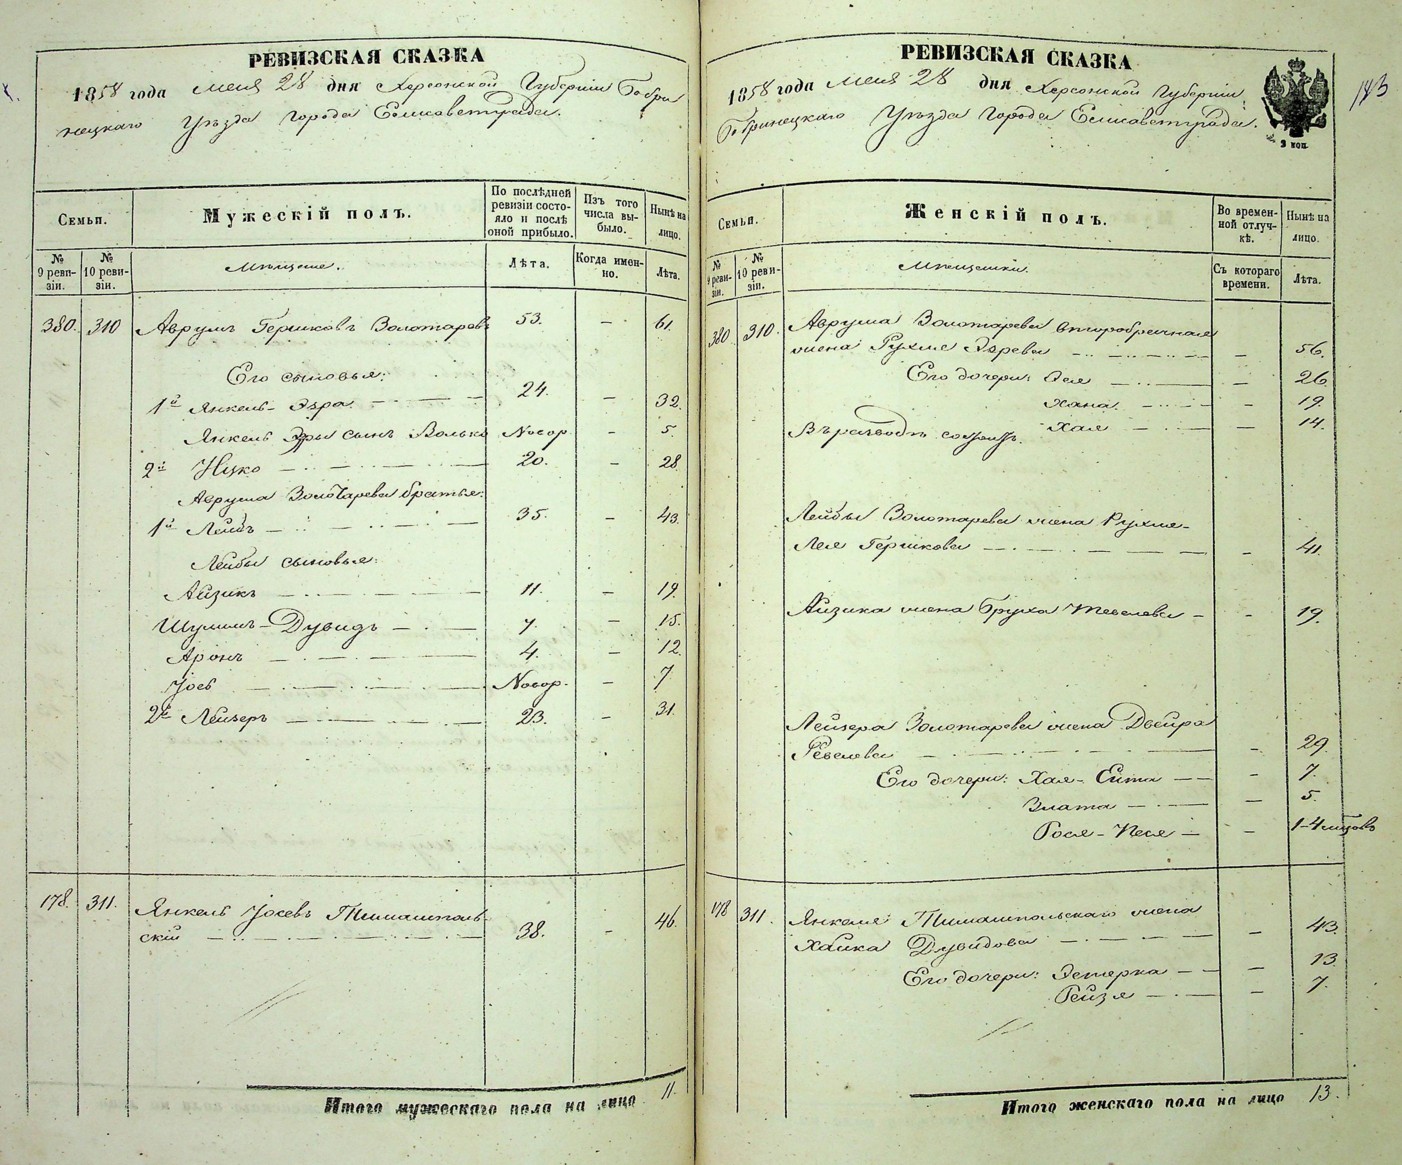 РЕВИЗСКАЯ СКАЗКА
1858 года Мая 28 дня Херсонской Губерніи Бобри
нецкаго Уѣзда города Елисаветграда.
Семьи.
Мужескій полъ.
По послѣдней ревизіи состояло и послѣ оной прибыло.
Изъ того числа выбыло.
Нынѣ на лицо.
№ 9 ревизіи.
№ 10 ревизіи.
Мѣщане.
Лѣта.
Когда именно.
Лѣта.
380. 310 Аврумъ Гершковъ Золотаревъ 53. – 61.
Его сыновья:
1й Янкель-Эзра 24. – 32.
Янкель Эзры сынъ Волько Новор. – 5.
2й Ицко 20. – 28.
Аврума Золотарева братья:
1й Лейбъ 35. – 43.
Лейбы сыновья:
Айзикъ 11. – 19.
Шулимъ-Дувидъ 7. – 15.
Аронъ 4. – 12.
Іосъ Новор. – 7.
2й Лейзеръ 23. – 31.
178. 311. Янкель Іосевъ Тимашполь
скій 38. – 46.
Итого мужескаго пола на лицо 11.
РЕВИЗСКАЯ СКАЗКА
1858 года Мая 28 дня Херсонской Губерніи
Бобринецкаго Уѣзда города Елисаветграда.
3 коп.
183
Семьи.
Женскій полъ.
Во временной отлучкѣ.
Нынѣ на лицо.
№ 9 ревизіи.
№ 10 ревизіи.
Мѣщанки.
Съ котораго времени.
Лѣта.
380. 310. Аврума Золотарева второбрачная
жена Рухля – 56.
Его дочери: Лея – 26.
Хана – 19.
Въ разводѣ Хая – 14.
Лейбы Золотарева жена Рухля-
Лея Гершкова – 41.
Айзика жена Бруха Тевелева – 19.
Лейзера Золотарева жена Двейра
– 29.
Его дочери: Хая-Сита – 7.
Злата – 5.
Рося-Песя – 1-4 мѣсяц
178 311. Янкеля Тимашпольскаго жена
Хайка Дувидова – 43.
Его дочери: Эстерка – 13.
Рейзя – 7.
Итого женскаго пола на лицо 13.